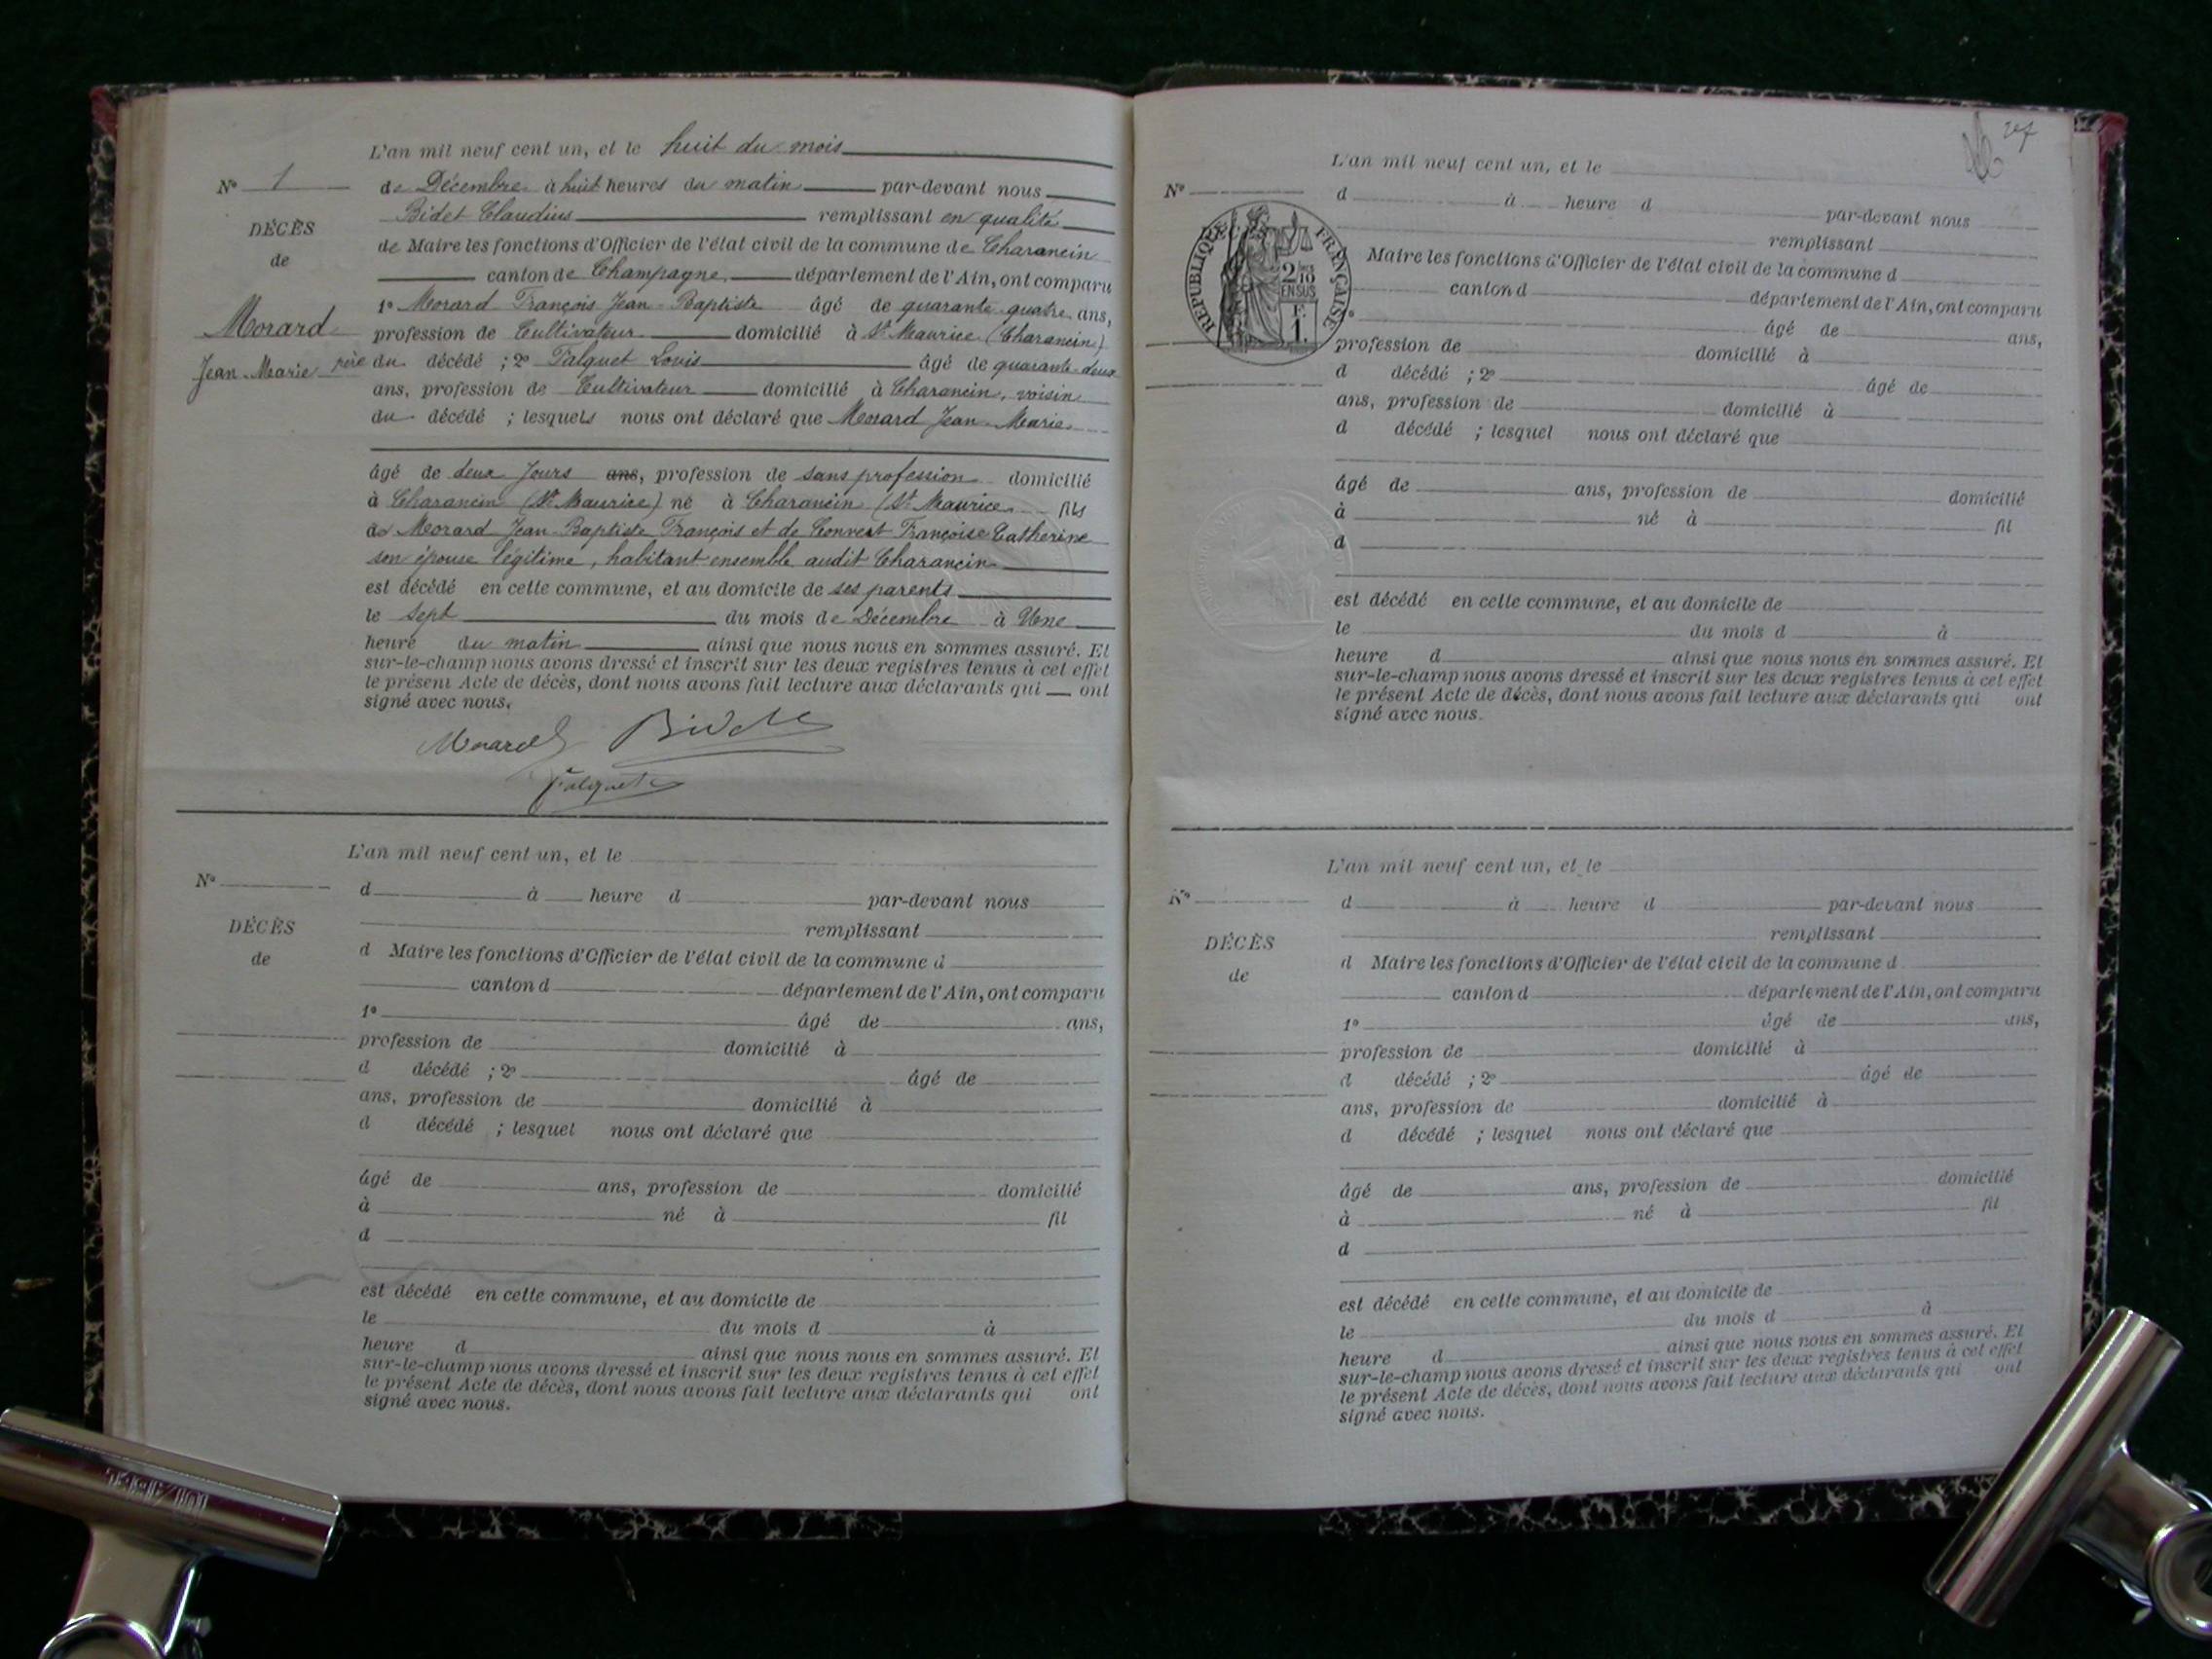 L'an mil neuf cent un, et le huit du mois
N° 1
de Décembre à huit heures du matin par-devant nous
Bidet Claudius remplissant en qualité
DÉCÈS
de
de Maire les fonctions d'Officier de l'état civil de la commune de Charancin
canton de Champagne département de l'Ain, ont comparu
1° Morard François Jean-Baptiste âgé de quarante quatre ans,
Morard
profession de Cultivateur domicilié à St Maurice (Charancin)
Jean-Marie
père du décédé ; 2° Falquet Louis âgé de quarante-deux
ans, profession de Cultivateur domicilié à Charancin, voisin
du décédé ; lesquels nous ont déclaré que Morard Jean-Marie
âgé de deux Jours ans, profession de sans profession domicilié
à Charancin (St Maurice) né à Charancin (St Maurice fils
de Morard Jean-Baptiste François et de Convert Françoise Catherine
son épouse légitime, habitant ensemble audit Charancin
est décédé en cette commune, et au domicile de ses parents
le sept du mois de Décembre à Une
heure du matin ainsi que nous nous en sommes assuré. Et
sur-le-champ nous avons dressé et inscrit sur les deux registres tenus à cet effet
le présent Acte de décès, dont nous avons fait lecture aux déclarants qui ont
signé avec nous.
Morard Bidet
Falquet
L'an mil neuf cent un, et le
N°
d à heure d par-devant nous
remplissant
DÉCÈS
de
d Maire les fonctions d'Officier de l'état civil de la commune d
canton d département de l'Ain, ont comparu
1° âgé de ans,
profession de domicilié à
d décédé ; 2° âgé de
ans, profession de domicilié à
d décédé ; lesquel nous ont déclaré que
âgé de ans, profession de domicilié
à né à fil
d
est décédé en cette commune, et au domicile de
le du mois d à
heure d ainsi que nous nous en sommes assuré. Et
sur-le-champ nous avons dressé et inscrit sur les deux registres tenus à cet effet
le présent Acte de décès, dont nous avons fait lecture aux déclarants qui ont
signé avec nous.
L'an mil neuf cent un, et le
N°
d à heure d par-devant nous
remplissant
RÉPUBLIQUE FRANÇAISE
2/10
EN SUS
F.
1.
Maire les fonctions d'Officier de l'état civil de la commune d
canton d département de l'Ain, ont comparu
âgé de ans,
profession de domicilié à
d décédé ; 2° âgé de
ans, profession de domicilié à
d décédé ; lesquel nous ont déclaré que
âgé de ans, profession de domicilié
à né à fil
d
est décédé en cette commune, et au domicile de
le du mois d à
heure d ainsi que nous nous en sommes assuré. Et
sur-le-champ nous avons dressé et inscrit sur les deux registres tenus à cet effet
le présent Acte de décès, dont nous avons fait lecture aux déclarants qui ont
signé avec nous.
L'an mil neuf cent un, et le
N°
d à heure d par-devant nous
remplissant
DÉCÈS
de
d Maire les fonctions d'Officier de l'état civil de la commune d
canton d département de l'Ain, ont comparu
1° âgé de ans,
profession de domicilié à
d décédé ; 2° âgé de
ans, profession de domicilié à
d décédé ; lesquel nous ont déclaré que
âgé de ans, profession de domicilié
à né à fil
d
est décédé en cette commune, et au domicile de
le du mois d à
heure d ainsi que nous nous en sommes assuré. Et
sur-le-champ nous avons dressé et inscrit sur les deux registres tenus à cet effet
le présent Acte de décès, dont nous avons fait lecture aux déclarants qui ont
signé avec nous.